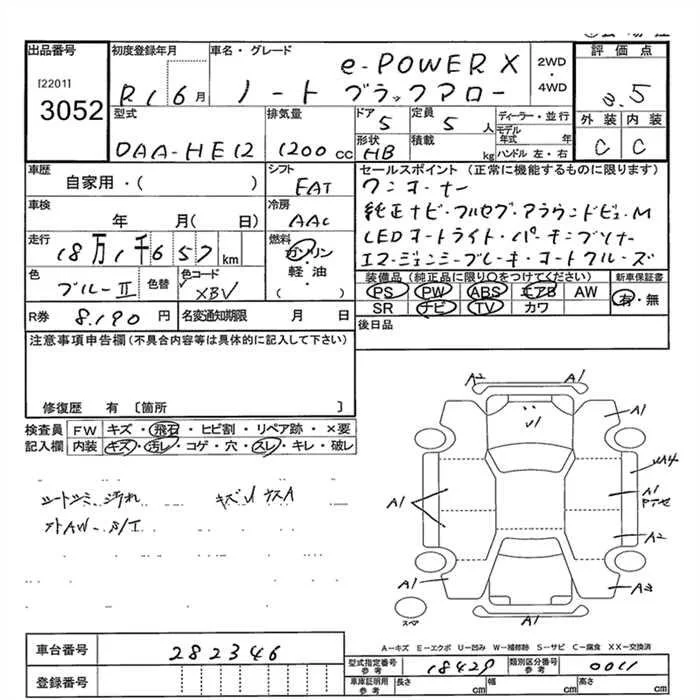 出品番号
[2201]
3052
初度登録年月
R1 6月
車名・グレード
e-POWER X
ノート ブラックアロー
2WD
・
4WD
評価点
3.5
外装 内装
C C
型式
DAA-HE12
排気量
1200cc
ドア
5
定員
5人
形状
HB
積載
kg
ディーラー・並行
モデル年式 年
ハンドル 左・右
車歴
自家用・( )
シフト
FAT
セールスポイント(正常に機能するものに限ります)
ワンオーナー
純正ナビ・フルセグ・アラウンドビュ-M
LEDオートライト・パーキングソナー
エマージェンシーブレーキ・オートクルーズ
車検
年 月(日)
冷房
AAC
走行
18万1千657km
燃料
ガソリン
・
軽・油
( )
色
ブルーII
色替
色コード
XBV
装備品(純正品に限り○をつけてください)
PS PW ABS エアB AW
SR ナビ TV カワ
新車保証書
有・無
R券
8.190円
名変通知期限 月 日
後日品
注意事項申告欄(不具合内容等は具体的に記入して下さい)
修復歴 有 〔箇所 〕
検査員記入欄
FW キズ・飛石・ヒビ割・リペア跡・×要
内装 キズ・汚レ・コゲ・穴・スレ・キレ・破レ
シートシミ汚れ キズ
外AW-S/I
A2 A1
A1
A1
A1
A1
A2
A1
A1
スペア
A－キズ E－エクボ U－凹み W－補修跡 S－サビ C－腐食 XX－交換済
車台番号
282346
登録番号
型式指定番号
参考
18429
類別区分番号
参考
0011
車庫証明用
参考
長さ cm
幅 cm
高さ cm